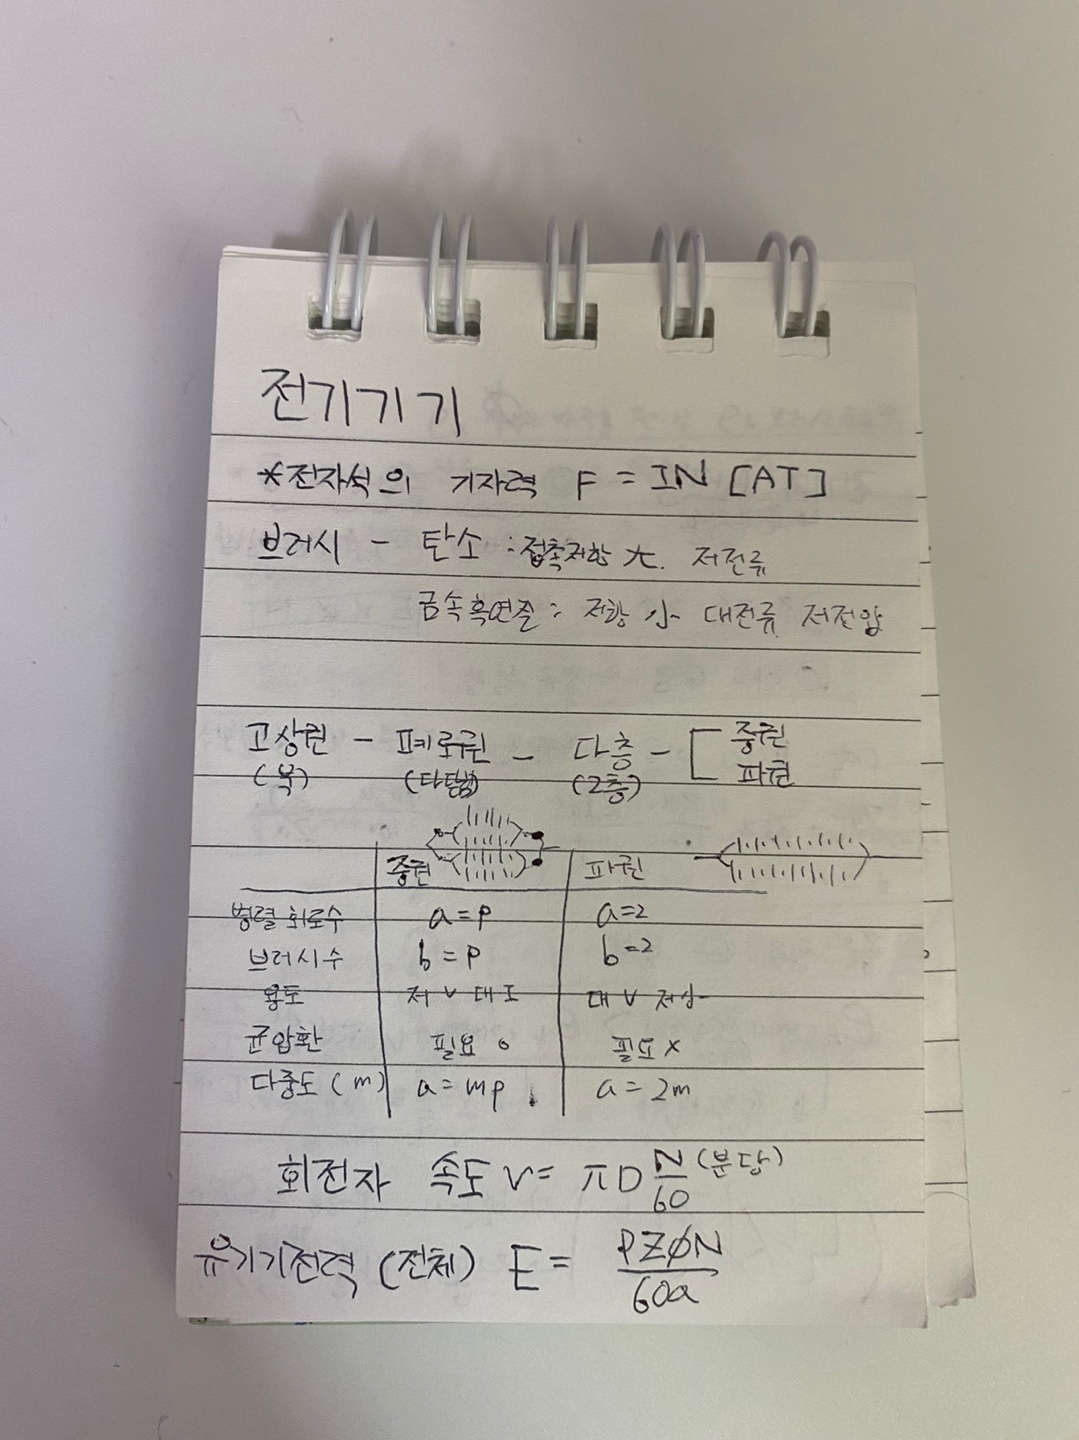 전기기기
*전자석의 기자력 F = IN [AT]
브러시 - 탄소 : 접촉저항 大. 저전류
금속흑연질 : 저항 小 대전류 저전압
고상권 - 폐로권 - 다층 - [ 중권
파권
(2층)
중권 파권
병렬 회로수 a=p a=2
브러시수 b=p b=2
용도 저 V 대 I 대 V 저
균압환 필요 o 필요 x
다중도 (m) a=mp a=2m
회전자 속도 v= πD N/60 (분당)
유기기전력 (전체) E = PZØN/60a